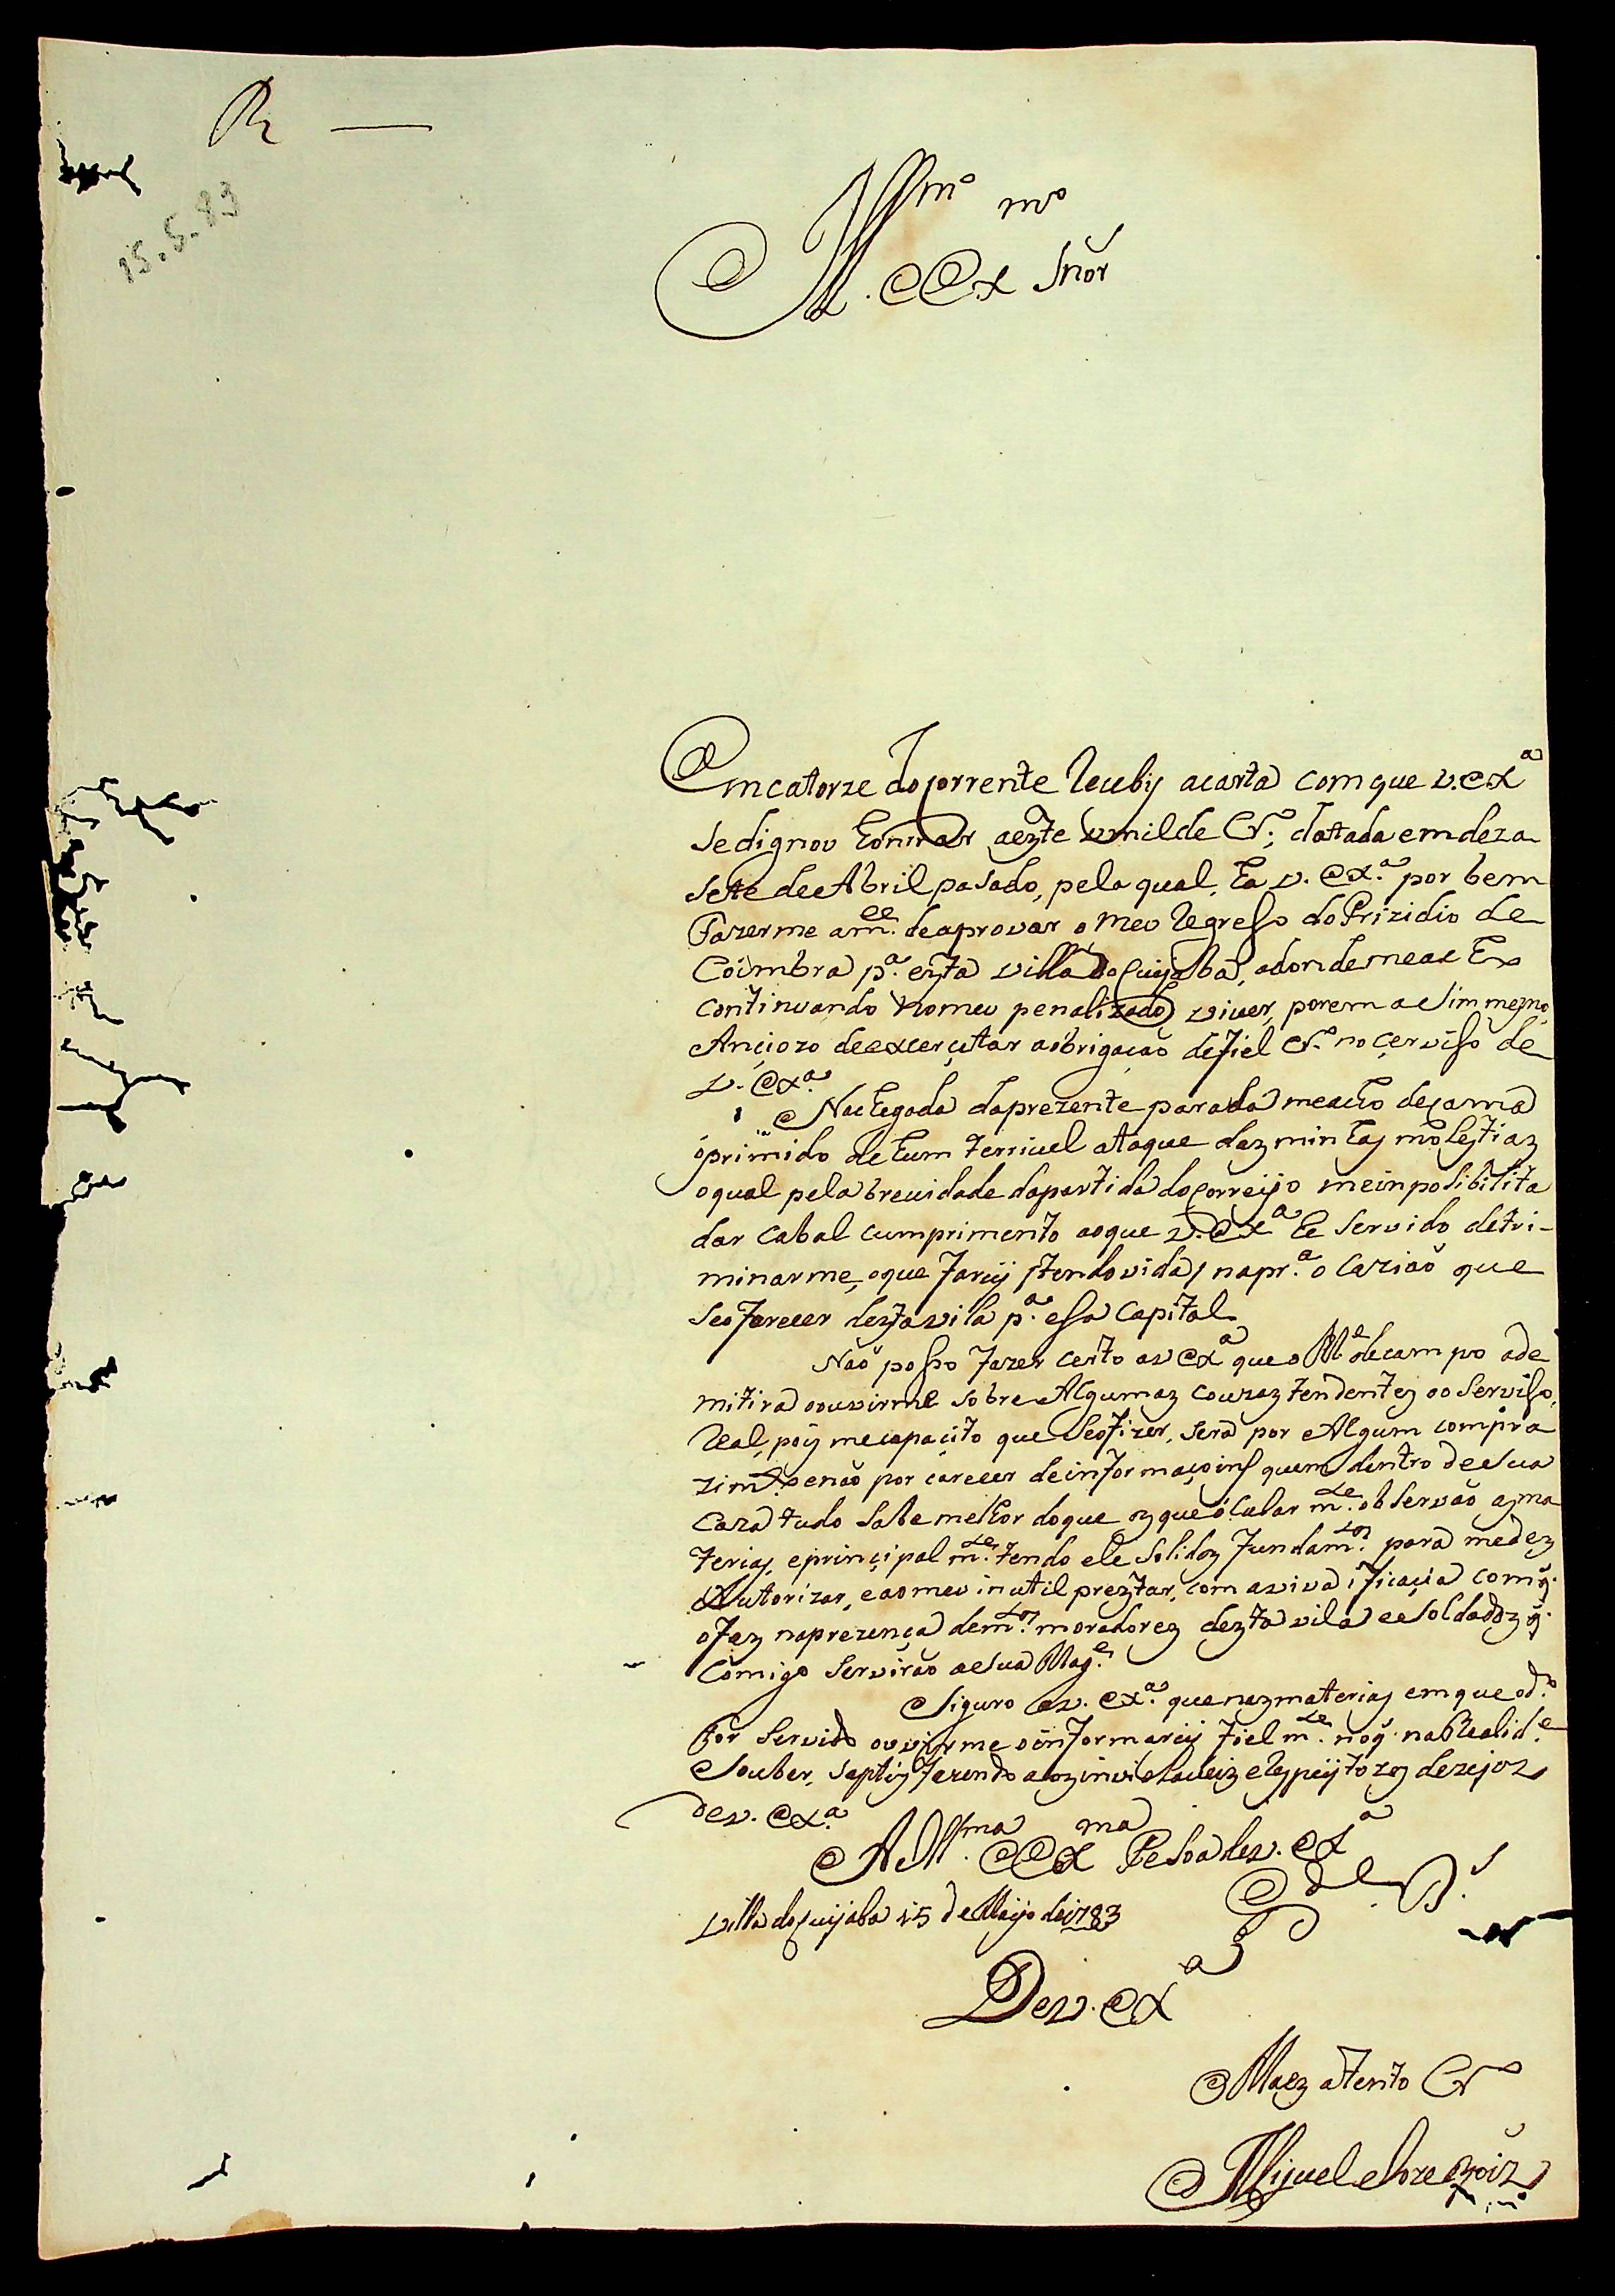 R —
15.5.83
Illmo. e Exmo Snor
Em catorze do corrente Recebij acarta com que v. exa
Sedignou honrar aezte umilde Cro; datada em deza
Sete de Abril pasado, pela qual, ha v. Exa. por bem
Fazerme amce. deaprovar o meu Regresso do Prizidio de
Coimbra pa. ezta villa do Cuijabá, adondemeax ho
continuando no meu penalizado viver, porem aSim mezmo,
Ançiozo deexerçutar aobrigação defiel Cro. no Çerviso de
v. Exa.
Nachegada daprezente parada meacho decama
óprimido dehum terrivel ataque daz minhaz moleztiaz
oqual pela brevidade dapartida docorreijo meinposibilita
dar cabal cumprimento aoque v. Exa he Servido detri-
minarme, oque farey, (tendo vida) napra. ocazião que
Seofarecer deztavila pa. essa Capital.
Não posso fazer certo av Exa que o Me. decampo ade
mitira oouvirme sobre Algumaz couzaz tendentez ao Serviso
Real, poiz mecapaçito que Seofizer, será por Algum compra
zimto. enão por careçer deinformaçoins quem dentro deSua
Caza tudo Sabe melhor doque oz que ócular mte. obServão azma
teriaz, eprinçipal mte. tendo ele Solidoz fundamtos. para medez
Autorizar, eaomeu inutil preztar, com aviva ificaçia comq.
ofez naprezença demtos. moradorez dezta vila eeSoldadoz q.
Comigo Servirão aSua Mage.
Siguro av. exa. que nazmateriaz emque od.o
for Servido ouvirme oinformarey fiel mte. noq. naRealide.
Souber, Saptizfazendo aoz inviolaveiz eRezpeijtozoz dezejoz
dev. Exa.
A Illma. e Exma Pesoa dev. Exa
Gde. Ds.
villa do Cuijaba 15 de Maijo de 1783
De v. Exa
Maez atento Cro
Miguel Joze Roiz